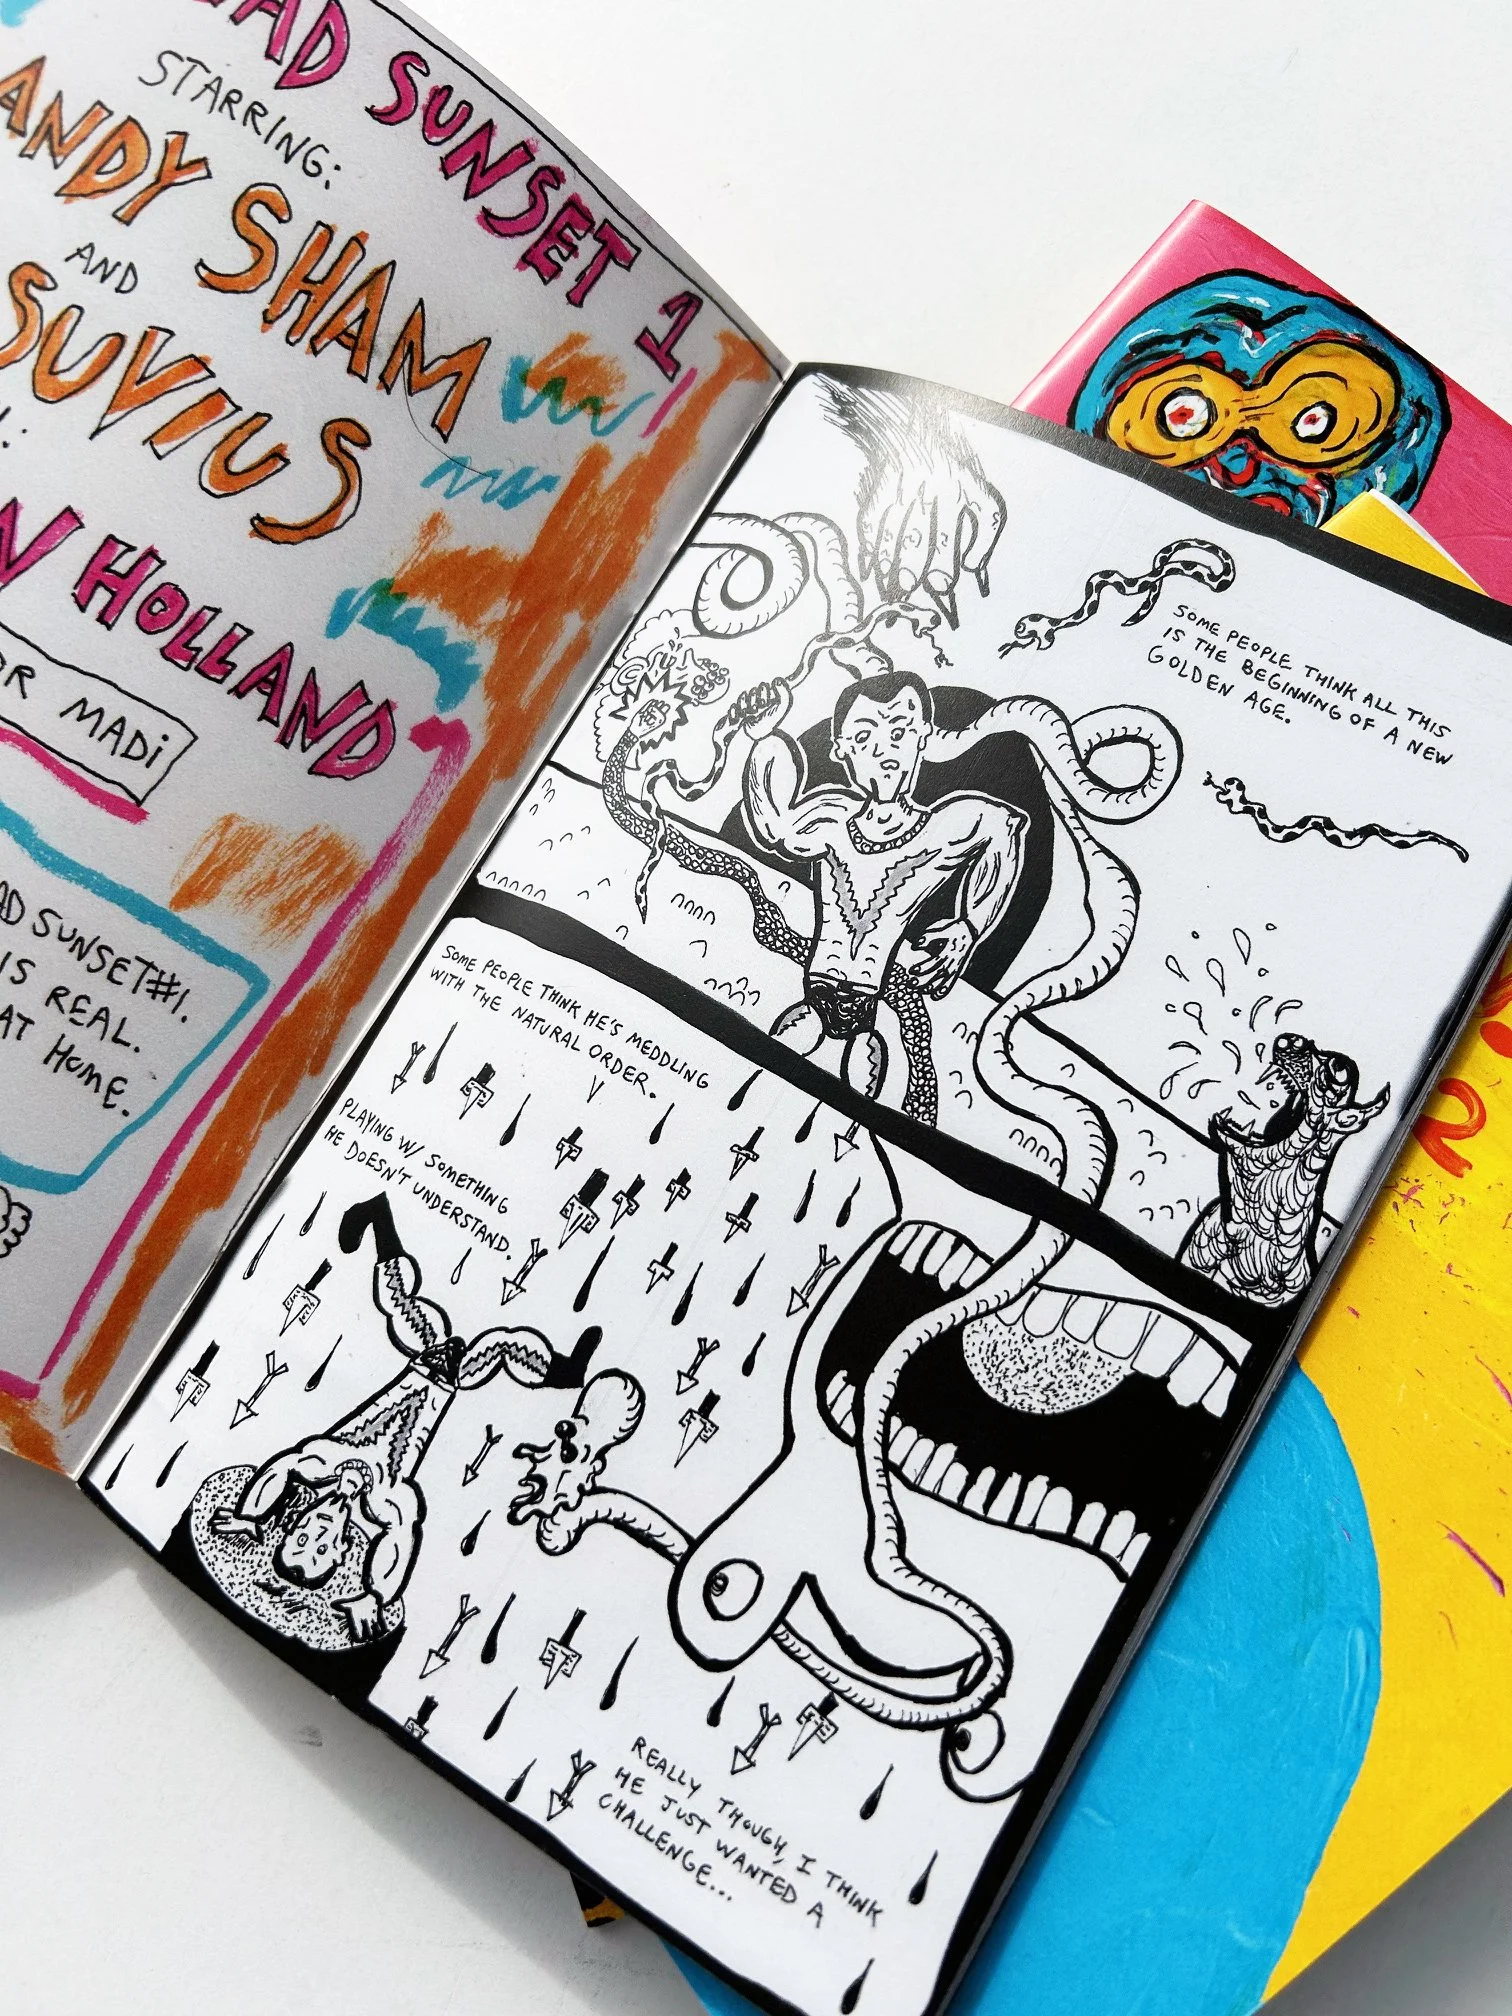 SUNSET 1
STARRING:
SHAM
AND
HOLLAND
MADi
SUNSET#1.
IS REAL.
AT HOME.
SOME PEOPLE THINK ALL THIS
IS THE BEGINNING OF A NEW
GOLDEN AGE.
SOME PEOPLE THINK HE'S MEDDLING
WITH THE NATURAL ORDER.
PLAYING W/ SOMETHING
HE DOESN'T UNDERSTAND.
REALLY THOUGH, I THINK
HE JUST WANTED A
CHALLENGE...
2